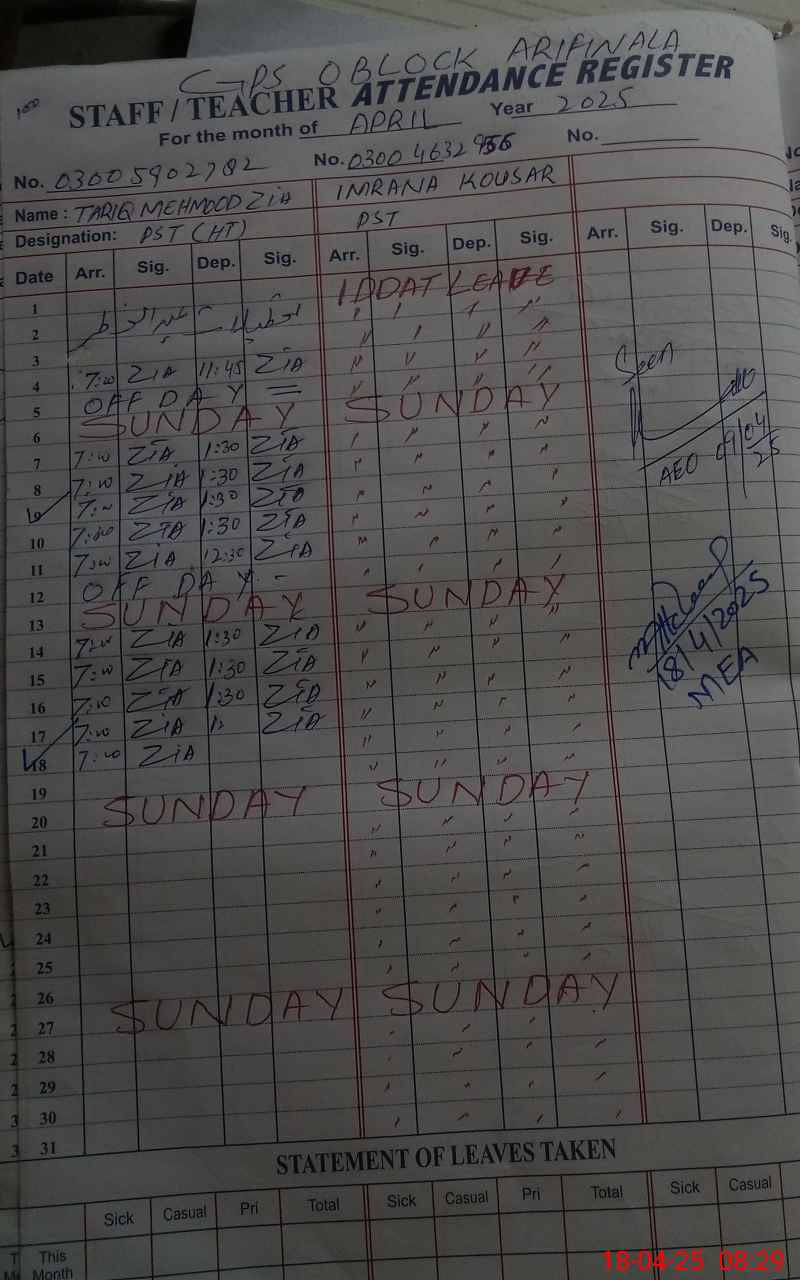 GPS O BLOCK ARIFINALA
STAFF / TEACHER ATTENDANCE REGISTER
For the month of APRIL Year 2025
No. 03005902782 No. 0300 4632 956 No.
Name : TARIQ MEHMOOD ZIA IMRANA KOUSAR
Designation: PST (HT) PST
Date Arr. Sig. Dep. Sig. Arr. Sig. Dep. Sig. Arr. Sig. Dep. Sig.
1 IDDAT LEAVE
2 تعطیلات عید الفطر
3
4 7:00 ZiA 11:45 ZiA
5 OFF DAY
6 SUNDAY SUNDAY
7 7:00 ZiA 1:30 ZiA
8 7:00 ZiA 1:30 ZiA
9 7:00 ZiA 1:30 ZiA
10 7:00 ZiA 1:30 ZiA
11 7:00 ZiA 12:30 ZiA
12 OFF DAY -
13 SUNDAY SUNDAY
14 7:00 ZiA 1:30 ZiA
15 7:00 ZiA 1:30 ZiA
16 7:00 ZiA 1:30 ZiA
17 7:00 ZiA 1: ZiA
18 7:00 ZiA
19
20 SUNDAY SUNDAY
21
22
23
24
25
26
27 SUNDAY SUNDAY
28
29
30
31
Seen
AEO 09/04/25
18/4/2025
MEA
STATEMENT OF LEAVES TAKEN
Sick Casual Pri Total Sick Casual Pri Total Sick Casual
This
Month
18-04-25 08:29